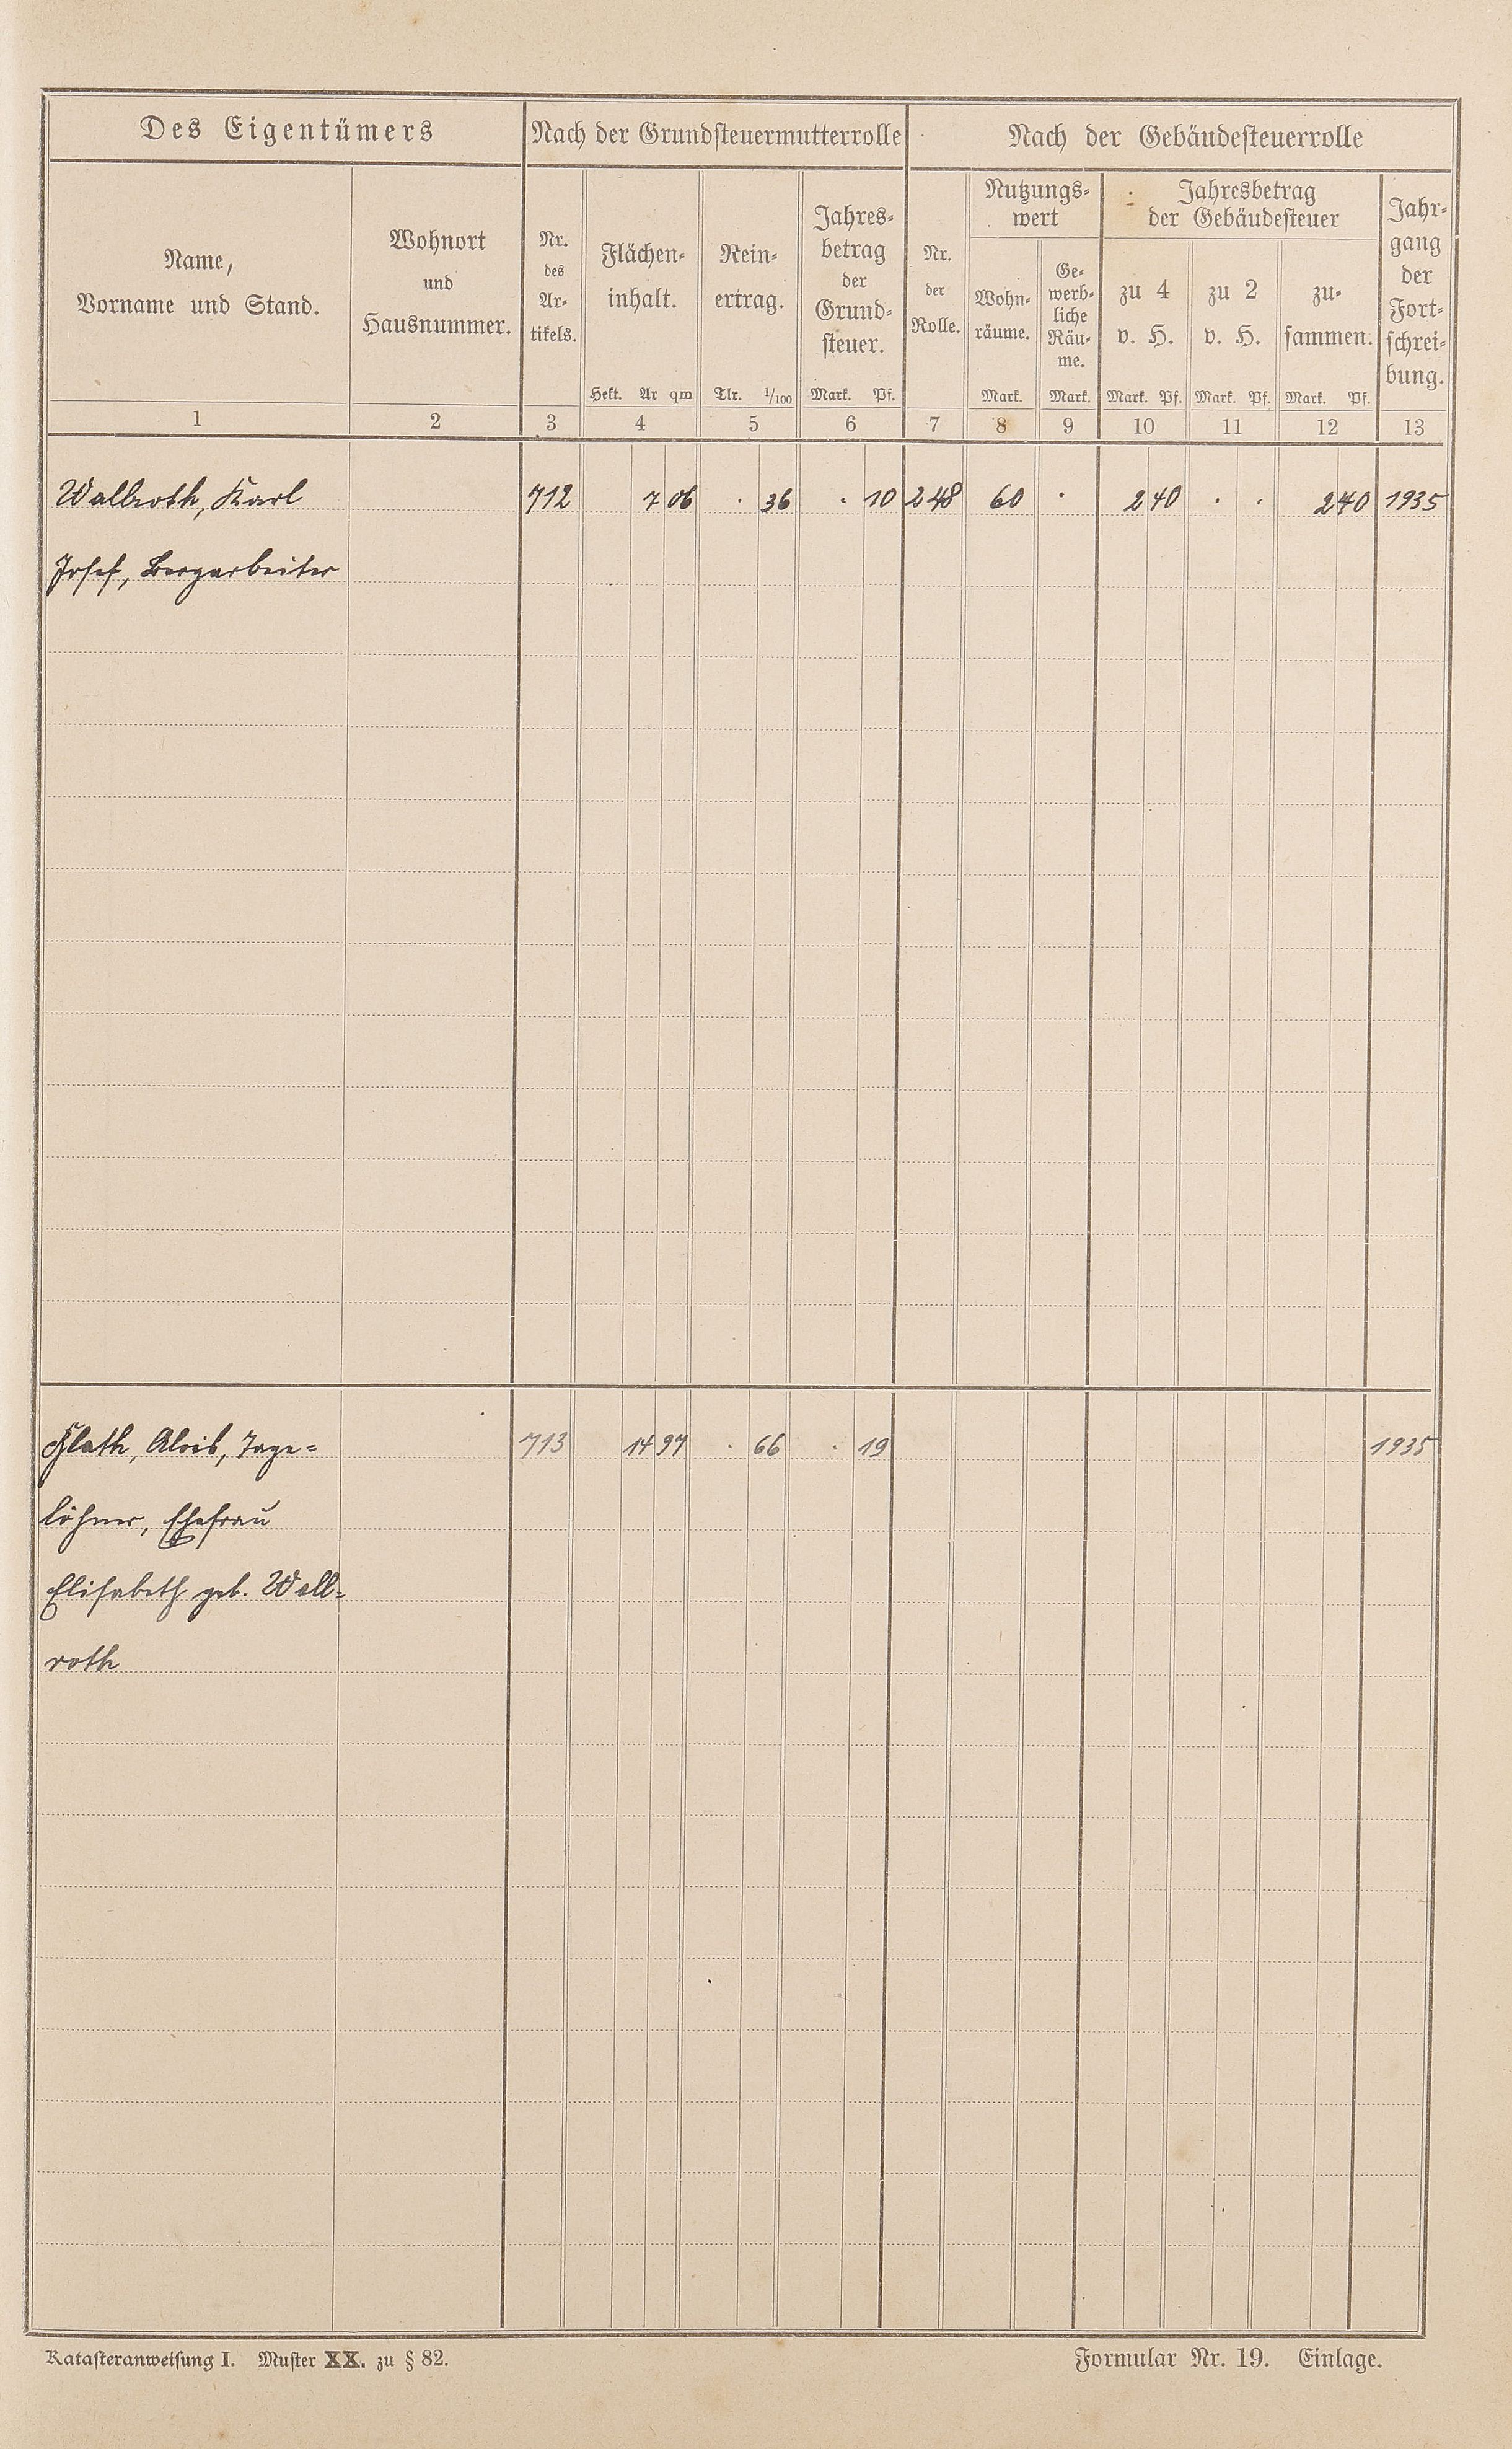 Des Eigentümers
Nach der Grundsteuermutterrolle
Nach der Gebäudesteuerrolle
Name,
Vorname und Stand.
Wohnort
und
Hausnummer.
Nr.
des
Ar-
tikels.
Flächen-
inhalt.
Hekt. Ar qm
Rein-
ertrag.
Tlr. 1/100
Jahres-
betrag
der
Grund-
steuer.
Mark. Pf.
Nr.
der
Rolle.
Nutzungs-
wert
Wohn-
räume.
Mark.
Ge-
werb-
liche
Räu-
me.
Mark.
Jahresbetrag
der Gebäudesteuer
zu 4
v. H.
Mark. Pf.
zu 2
v. H.
Mark. Pf.
zu-
sammen.
Mark. Pf.
Jahr-
gang
der
Fort-
schrei-
bung.
1 2 3 4 5 6 7 8 9 10 11 12 13
Wallroth, Karl 712 7 06 . 36 . 10 248 60 . 2 40 . . 2 40 1935
Josef, Bergarbeiter
Alois, Tage= 713 14 97 . 66 . 19 1935
löhner, Ehefrau
Elisabeth geb. Wall=
roth
Katasteranweisung I. Muster XX. zu § 82.
Formular Nr. 19. Einlage.